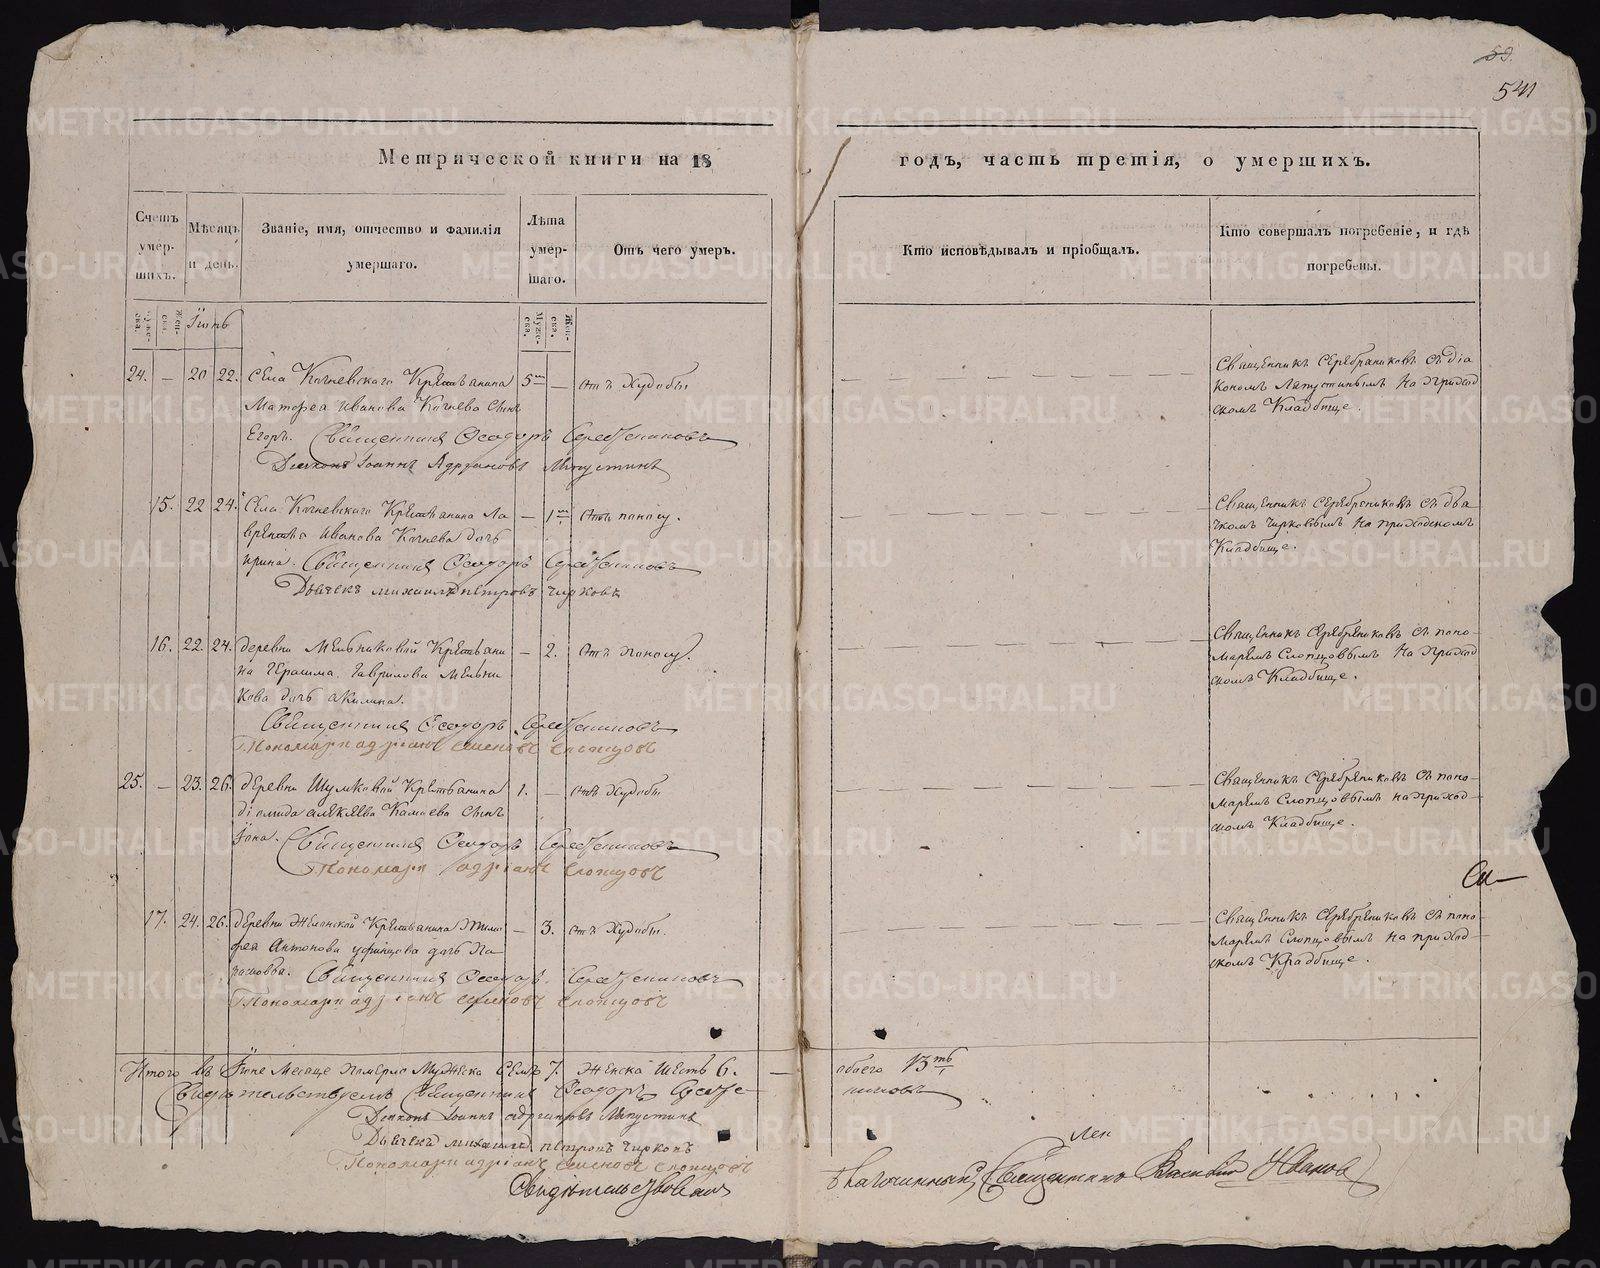 59.
541
Метрической книги на 18
годъ, часть третія, о умершихъ.
Счетъ умер-
шихъ.
Мѣсяцъ
и день.
Званіе, имя, отчество и фамилія
умершаго.
Лѣта
умер-
шаго.
Отъ чего умеръ.
Кто исповѣдывалъ и пріобщалъ.
Кто совершалъ погребеніе, и гдѣ
погребены.
Муже-
ска.
Жен-
ска.
Муже-
ска.
Жен-
ска.
24. — 20 22. Села Кочневскаго Крестьянина 5 — отъ Худобы
Матфея Иванова Кочнева сынъ
Егоръ. Священникъ Ѳеодоръ Серебрениковъ
Діаконъ Іоаннъ Адріановъ Лапустинъ
Священникъ Серебряниковъ съ діа
кономъ Лапустинымъ на приход
скомъ Кладбище.
15. 22 24. Села Кочневскаго Крестьянина Ла — 1 отъ поносу.
врентія Иванова Кочнева дочь
Ирина. Священникъ Ѳеодоръ Серебрениковъ
Дьячекъ Михаилъ Петровъ Чирковъ
Священникъ Серебрениковъ съ дья
чкомъ Чирковымъ на приходскомъ
Кладбище.
16. 22. 24. деревни Мельниковой Крестьяни — 2. отъ поносу.
на Герасима Гаврилова Мельни
кова дочь Акилина.
Священникъ Ѳеодоръ Серебрениковъ
Пономарь Адріанъ Семеновъ Слопцовъ
Священникъ Серебрениковъ съ поно-
маремъ Слопцовымъ на приход
скомъ Кладбище.
25. — 23. 26. деревни Шулковой Крестьянина 1. — отъ Худобы
сынъ
Іона. Священникъ Ѳеодоръ Серебрениковъ
Пономарь Адріанъ Слопцовъ
Священникъ Серебрениковъ съ поно-
маремъ Слопцовымъ на приход-
скомъ Кладбище.
17. 24. 26. деревни Крестьянина Тимо — 3. отъ Худобы.
фея Антонова дочь Па
расковья. Священникъ Ѳеодоръ Серебрениковъ
Пономарь Адріанъ Семеновъ Слопцовъ
Священникъ Серебрениковъ съ поно-
маремъ Слопцовымъ на приход-
скомъ Кладбище.
Итого въ Іюне месяце померло Мужеска Семь 7. Женска Шесть 6. — обоего 13
Свидетельствуемъ Священникъ Ѳеодоръ Сереб-
рениковъ
Діаконъ Іоаннъ Адріановъ Лапустинъ
Дьячекъ Михаилъ Петровъ Чирковъ
Пономарь Адріанъ Семеновъ Слопцовъ
Свидѣтельствовалъ
благочинный, Священникъ Василій Ивановъ
METRIKI.GASO-URAL.RU